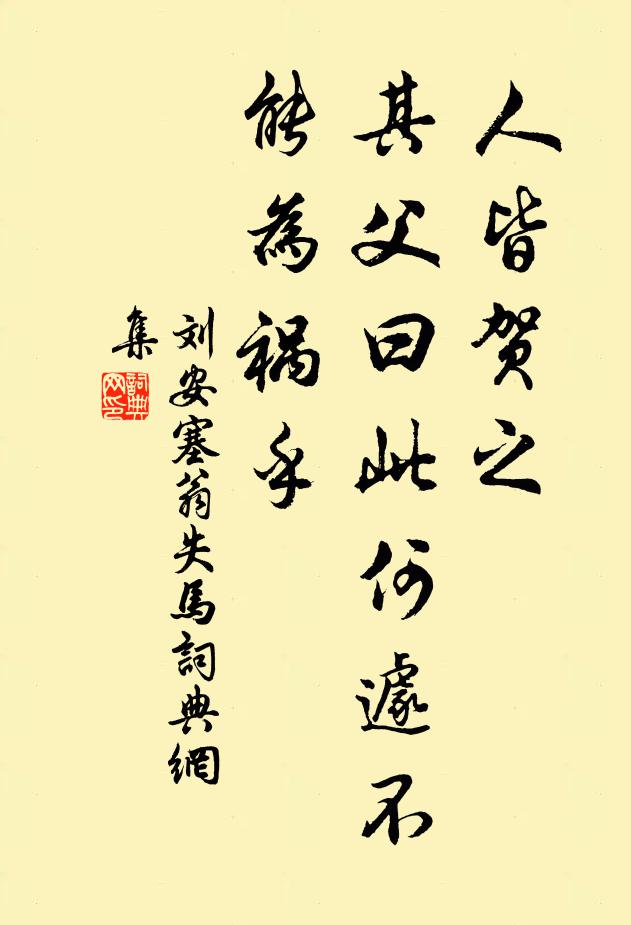 人皆贺之
其父曰此何遽不
能為禍乎
刘安塞翁失馬詞典網
集
詞典
网印